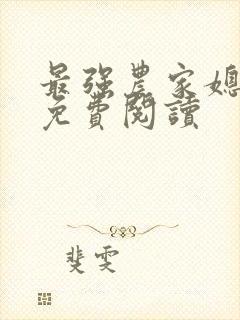 最強農家媳
免費閱讀
斐雯